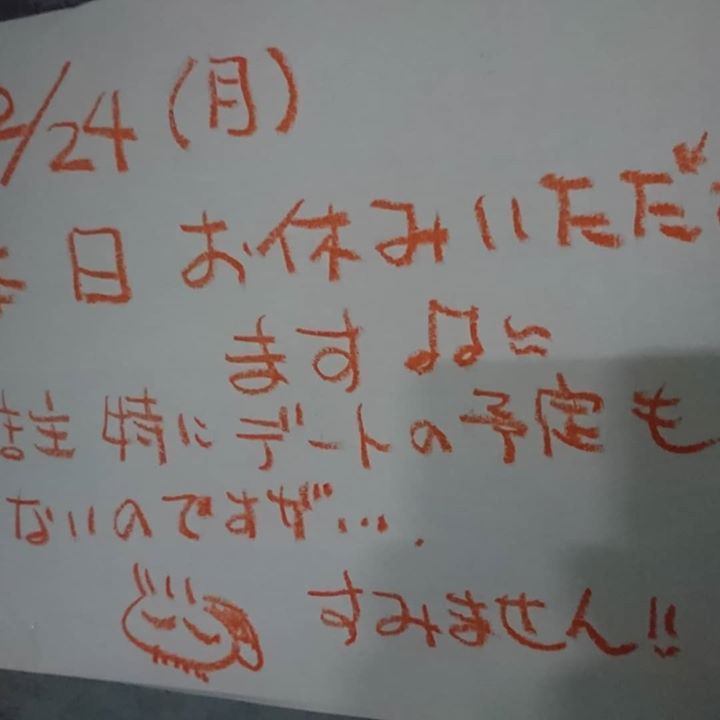 2/24 (月)
本日 お休みいただき
ます ♫
注 特にデートの予定も
ないのですが….
すみません!!